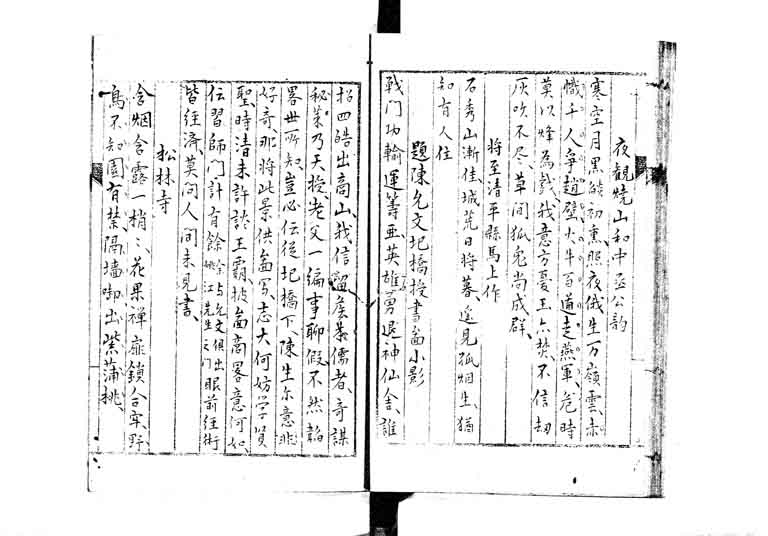 夜觀燒山和中丞公韵
寒空月黑皢初熏照夜俄生万嶺雲赤
幟千人奪趙壁火牛百道走燕軍危時
莫以烽為戲我意方憂玉亦焚不信劫
灰吹不尽草間狐兔尚成群
將至清平縣馬上作
石秀山漸佳城荒日將暮遙見孤烟生猶
知有人住
題陳允文圯橋授書畫小影
戰鬥功輸運籌亞英雄勇退神仙舍誰
招四皓出商山我信留侯葉儒者奇謀
秘策乃天授老父一編事聊假不然韜
畧世所知豈必伝從圯橋下陳生尔意非
好奇那將此景供畫写志大何妨学賢
聖時清未許談王霸披畫高畧意何如
伝習師門計有餘 余与允文俱出姚江先生之門 眼前經術
皆經済莫問人間未見書
松林寺
含烟含露一梢〻花果禅扉鎖合牢野
鳥不知園有禁隔墻啣出紫蒲桃